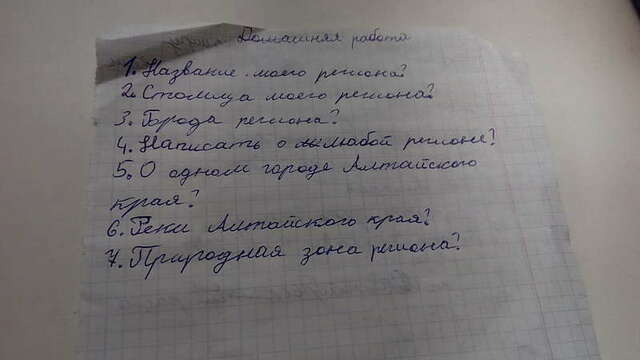 Домашняя работа
1. Название моего региона?
2. Столица моего региона?
3. Города региона?
4. Написать о любой регионе?
5. О одном городе Алтайского
края?
6. Реки Алтайского края?
7. Природная зона региона?